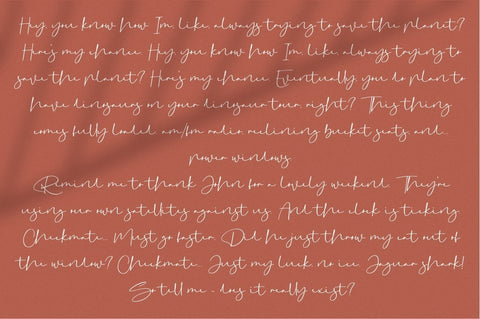 Hey, you know how I'm, like, always trying to save the planet?
Here's my chance. Hey, you know how I'm, like, always trying to
save the planet? Here's my chance. Eventually, you do plan to
have dinosaurs on your dinosaur tour, right? This thing
comes fully loaded. am/fm radio, reclining bucket seats, and...
power windows.
Remind me to thank John for a lovely weekend. They're
using our own satellites against us. And the clock is ticking.
Checkmate... Must go faster. Did he just throw my cat out of
the window? Checkmate... Just my luck, no ice. Jaguar shark!
So tell me - does it really exist?